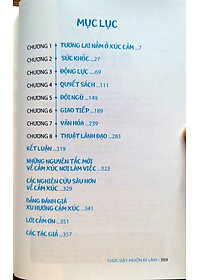 MỤC LỤC
CHƯƠNG 1 • TƯƠNG LAI NẰM Ở XÚC CẢM ...7
CHƯƠNG 2 • SỨC KHỎE ...27
CHƯƠNG 3 • ĐỘNG LỰC ...69
CHƯƠNG 4 • QUYẾT SÁCH ...111
CHƯƠNG 5 • ĐỘI NGŨ ...149
CHƯƠNG 6 • GIAO TIẾP ...189
CHƯƠNG 7 • VĂN HÓA ...239
CHƯƠNG 8 • THUẬT LÃNH ĐẠO ...283
KẾT LUẬN ...319
NHỮNG NGUYÊN TẮC MỚI
VỀ CẢM XÚC NƠI LÀM VIỆC ...323
CÁC NGHIÊN CỨU SÂU HƠN
VỀ CẢM XÚC ...329
BẢNG ĐÁNH GIÁ
XU HƯỚNG CẢM XÚC ...341
LỜI CẢM ƠN ...351
CÁC TÁC GIẢ ...357
THỨC DẬY MUỐN ĐI LÀM - 359